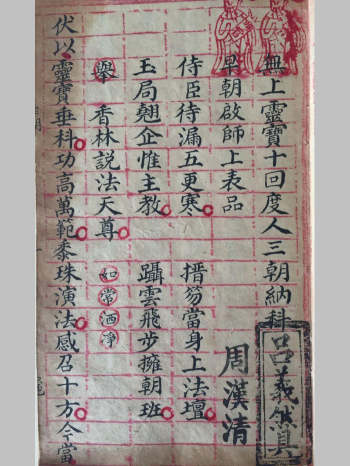 無上靈寶十回度人三朝納科
早朝啟師上表品
周漢清
呂義然具
侍臣待漏五更寒 搢笏當身上法壇
玉局翹企惟主教 躡雲飛步擁朝班
舉 香林説法天尊 如常洒淨
伏以靈寶垂科功高萬範黍珠演法感召十方今當